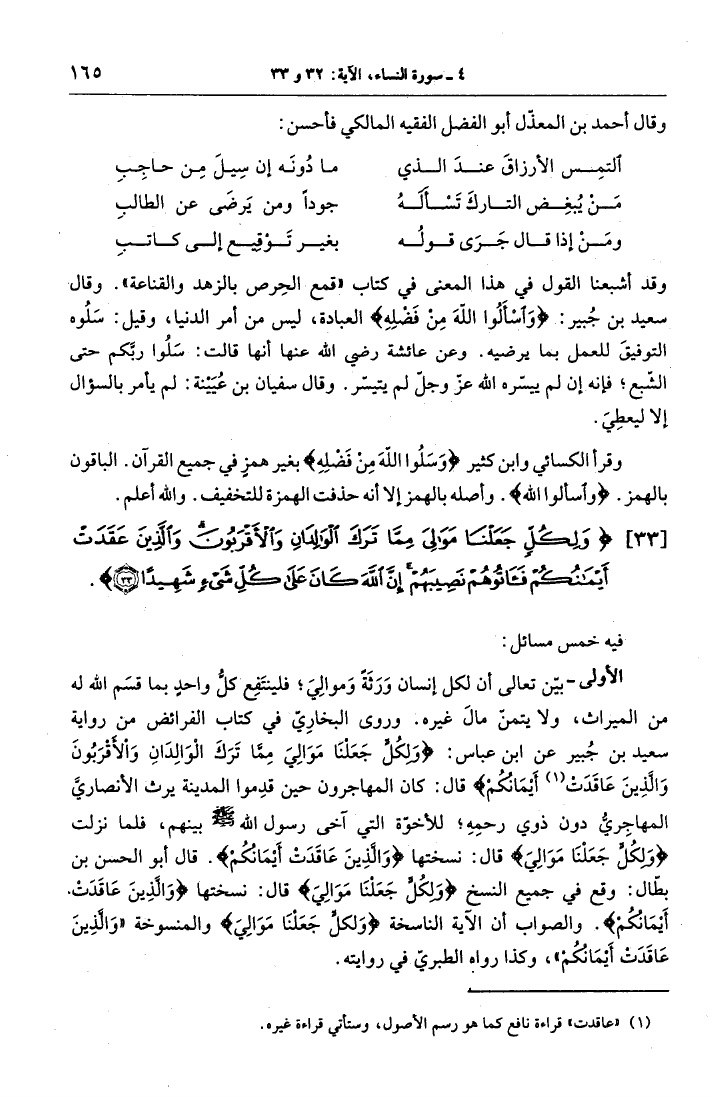 ٤ ـ سورة النساء، الآية: ٣٢ و ٣٣ ١٦٥
وقال أحمد بن المعذّل أبو الفضل الفقيه المالكي فأحسن:
ٱلتمِـس الأرزاقَ عنـدَ الـذي ما دُونَه إن سِيلَ مِن حاجِبِ
مَـنْ يُبغِـض التـاركَ تَسْـآلَـهُ جوداً ومن يَرضَى عن الطالبِ
ومَـنْ إذا قـال جَـرَى قـولُـه بغيـر تَـوْقِيـع إلـى كـاتـبِ
وقد أشبعنا القول في هذا المعنى في كتاب «قمع الحِرص بالزهد والقناعة». وقال
سعيد بن جُبير: ﴿وَٱسْأَلُوا اللَّهَ مِنْ فَضْلِهِ﴾ العبادة، ليس من أمر الدنيا، وقيل: سَلُوه
التوفيقَ للعمل بما يرضيه. وعن عائشة رضي الله عنها أنها قالت: سَلُوا ربَّكم حتى
الشّبع؛ فإنه إن لم ييسّره الله عزّ وجلّ لم يتيسّر. وقال سفيان بن عُيَيْنة: لم يأمر بالسؤال
إلا ليعطِيَ.
وقرأ الكسائي وابن كثير ﴿وَسَلُوا اللَّهَ مِنْ فَضْلِهِ﴾ بغير همزٍ في جميع القرآن. الباقون
بالهمز. ﴿وٱسألوا الله﴾. وأصله بالهمز إلا أنه حذفت الهمزة للتخفيف. والله أعلم.
[٣٣] ﴿ وَلِكُلٍّ جَعَلْنَا مَوَٰلِىَ مِمَّا تَرَكَ ٱلْوَٰلِدَانِ وَٱلْأَقْرَبُونَ ۚ وَٱلَّذِينَ عَقَدَتْ
أَيْمَـٰنُكُمْ فَـَٔاتُوهُمْ نَصِيبَهُمْ ۚ إِنَّ ٱللَّهَ كَانَ عَلَىٰ كُلِّ شَىْءٍ شَهِيدًا ٣٣ ﴾.
فيه خمس مسائل:
الأولى ـ بيّن تعالى أن لكل إنسان وَرَثَةً وَموالِيَ؛ فلينتَفِع كلُّ واحدٍ بما قسَم الله له
من الميراث، ولا يتمنّ مالَ غيره. وروى البخارِيّ في كتاب الفرائض من رواية
سعيد بن جُبير عن ابن عباس: ﴿وَلِكُلٍّ جَعَلْنَا مَوَالِيَ مِمَّا تَرَكَ الْوَالِدَانِ وَٱلْأَقْرَبُونَ
وَالَّذِينَ عَاقَدَتْ(١) أَيْمَانُكُمْ﴾ قال: كان المهاجرون حين قدِموا المدينة يرث الأنصاريَّ
المهاجرِيُّ دون ذوي رحمِهِ؛ للأخوّة التي آخى رسول الله ﷺ بينهم، فلما نزلت
﴿وَلِكُلٍّ جَعَلْنَا مَوَالِيَ﴾ قال: نسختها ﴿وَالَّذِينَ عَاقَدَتْ أَيْمَانُكُمْ﴾. قال أبو الحسن بن
بطّال: وقع في جميع النسخ ﴿وَلِكُلٍّ جَعَلْنَا مَوَالِيَ﴾ قال: نسختها ﴿وَالَّذِينَ عَاقَدَتْ
أَيْمَانُكُمْ﴾. والصواب أن الآية الناسخة ﴿وَلِكلٍّ جَعَلْنَا مَوَالِيَ﴾ والمنسوخة «وَالَّذِينَ
عَاقَدَتْ أَيْمَانُكُمْ»، وكذا رواه الطبريّ في روايته.
(١) «عاقدت» قراءة نافع كما هو رسم الأصول، وستأتي قراءة غيره.